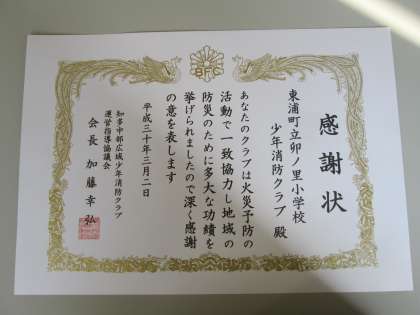 BFC
感謝状
東浦町立卯ノ里小学校
少年消防クラブ 殿
あなたのクラブは火災予防の
活動で一致協力し地域の
防災のために多大な功績を
挙げられましたので深く感謝
の意を表します
平成三十年三月二日
知多中部広域少年消防クラブ
運営指導協議会
会長 加藤幸弘